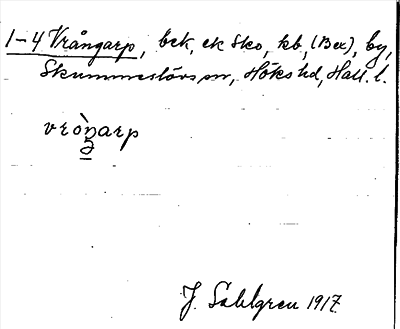 1-4 Vrångarp, bek, ek Sko, kb, (Bex), by,
Skummeslövs sn, Höks hd, Hall. l.
vròŋarp
J. Sahlgren 1917